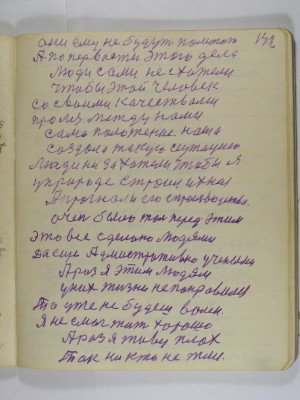 132
они ему не будут помогать
А по первости этого дела
люди сами не схотели
чтобы этой человек
со своими качествами
прошел между нами
само положение наше
создало такую сетуацию
Люди ни захотели чтобы я
у природе строил ихнее
А прогнали со строизводства.
очен было тол перед этим
Это все сделано людями
да еще Административно учеными
А раз я этим людям
у них жизни не понравился
То уже не будеш волен.
Я не смог жить хорошо
А раз я живу плох
Так ни кто не жил.